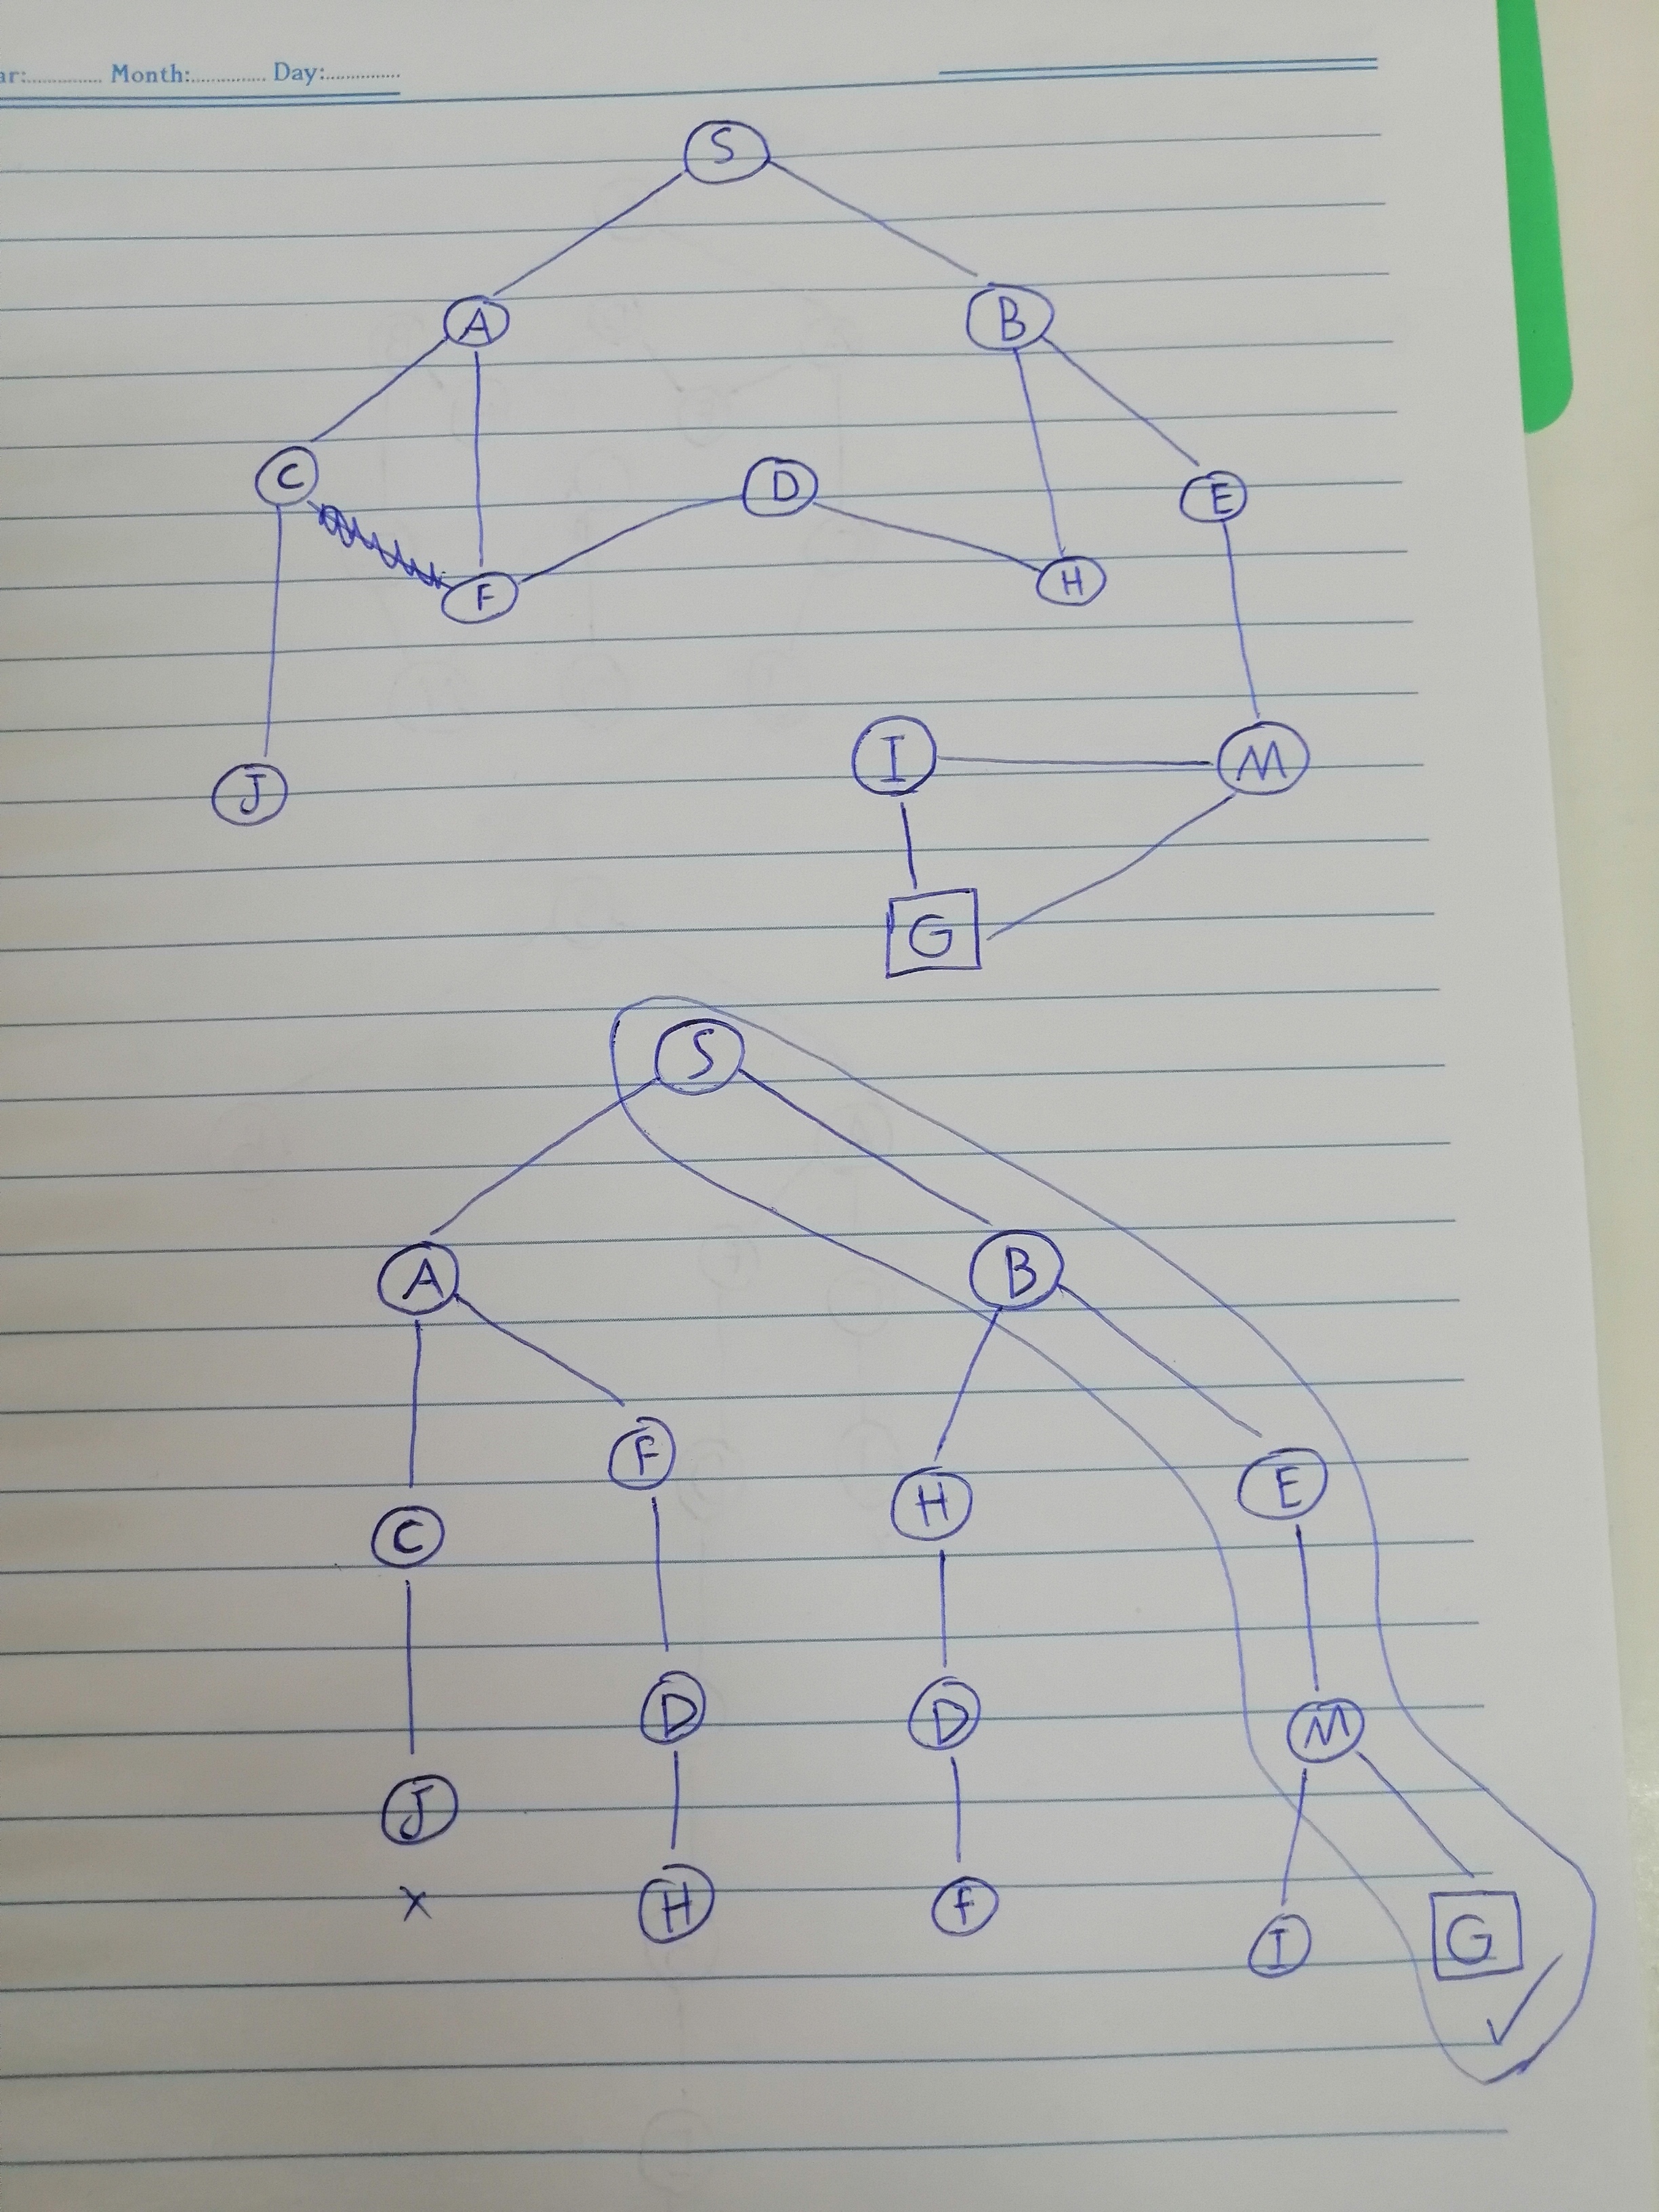 ar: Month: Day:
S
A B
C D E
F H
J I M
G
S
A B
F
C H E
D D M
J
x H f I G
✓